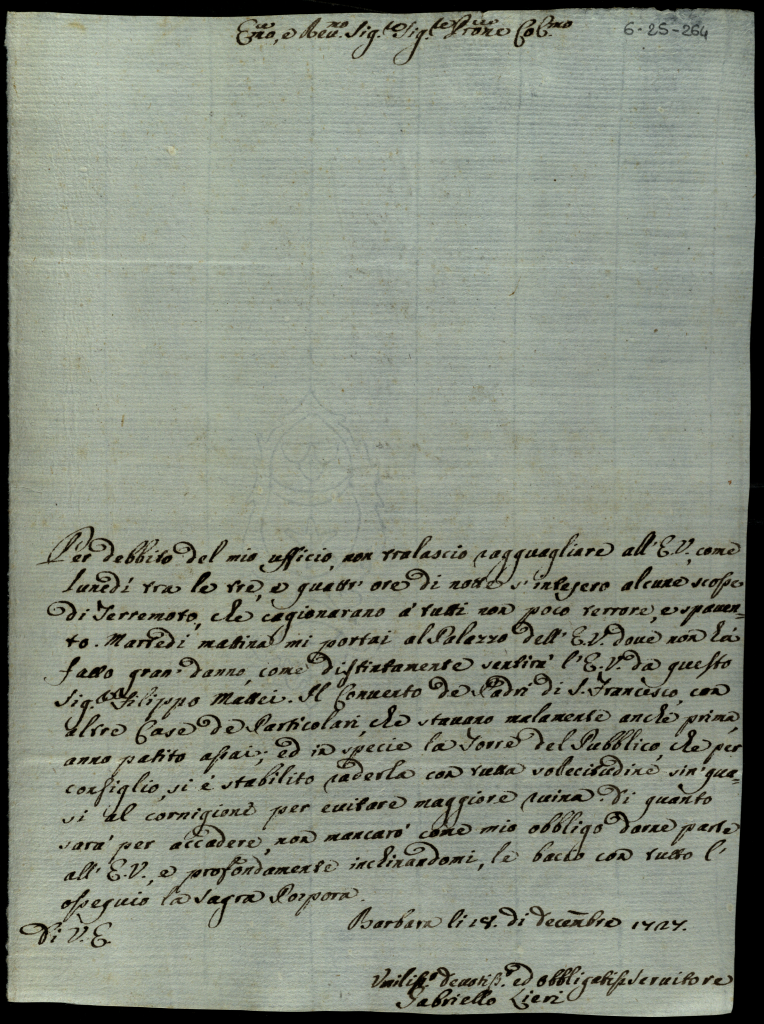 Em.o, e Rev.mo Sig.re Sig.re Pron̄e Col.mo
6-25-264
Per debbito del mio ufficio, non tralascio ragguagliare all'E.V., come
lunedì tra le trè, e quattr'ore di notte s'intesero alcune scosse
di Terremoto, che cagionarano à tutti non poco terrore, e spaven-
to. Martedì mattina mi portai al Palazzo dell'E.V. dove non hà
fatto gran danno, come distintamente sentirà l'E.V. da questo
Sig. Filippo Mattei. Il Convento de Padri di S. Francesco, con
altre Case de Particolari, che stavano malamente anche prima,
anno patito assai; ed in specie la Torre del Pubblico, che per
consiglio, si è stabilito raderla con tutta solecitudine sin'qua-
si al cornigione per evitare maggiore ruina. Di quanto
sarà per accadere, non mancarò come mio obbligo darne parte
all'E.V., e profondamente inchinandomi, le bacio con tutto l'
ossequio la Sagra Porpora.
Di V.E. Barbara li 18. di decembre 1727.
Umiliss.o devotiss.o ed obbligatiss. Servitore
Gabriello Lieri